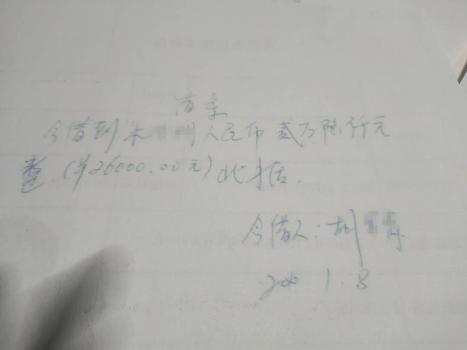 借条
今借到朱 人民币贰万陆仟元
整.(¥26000.00元)此据.
今借人:胡
1.8